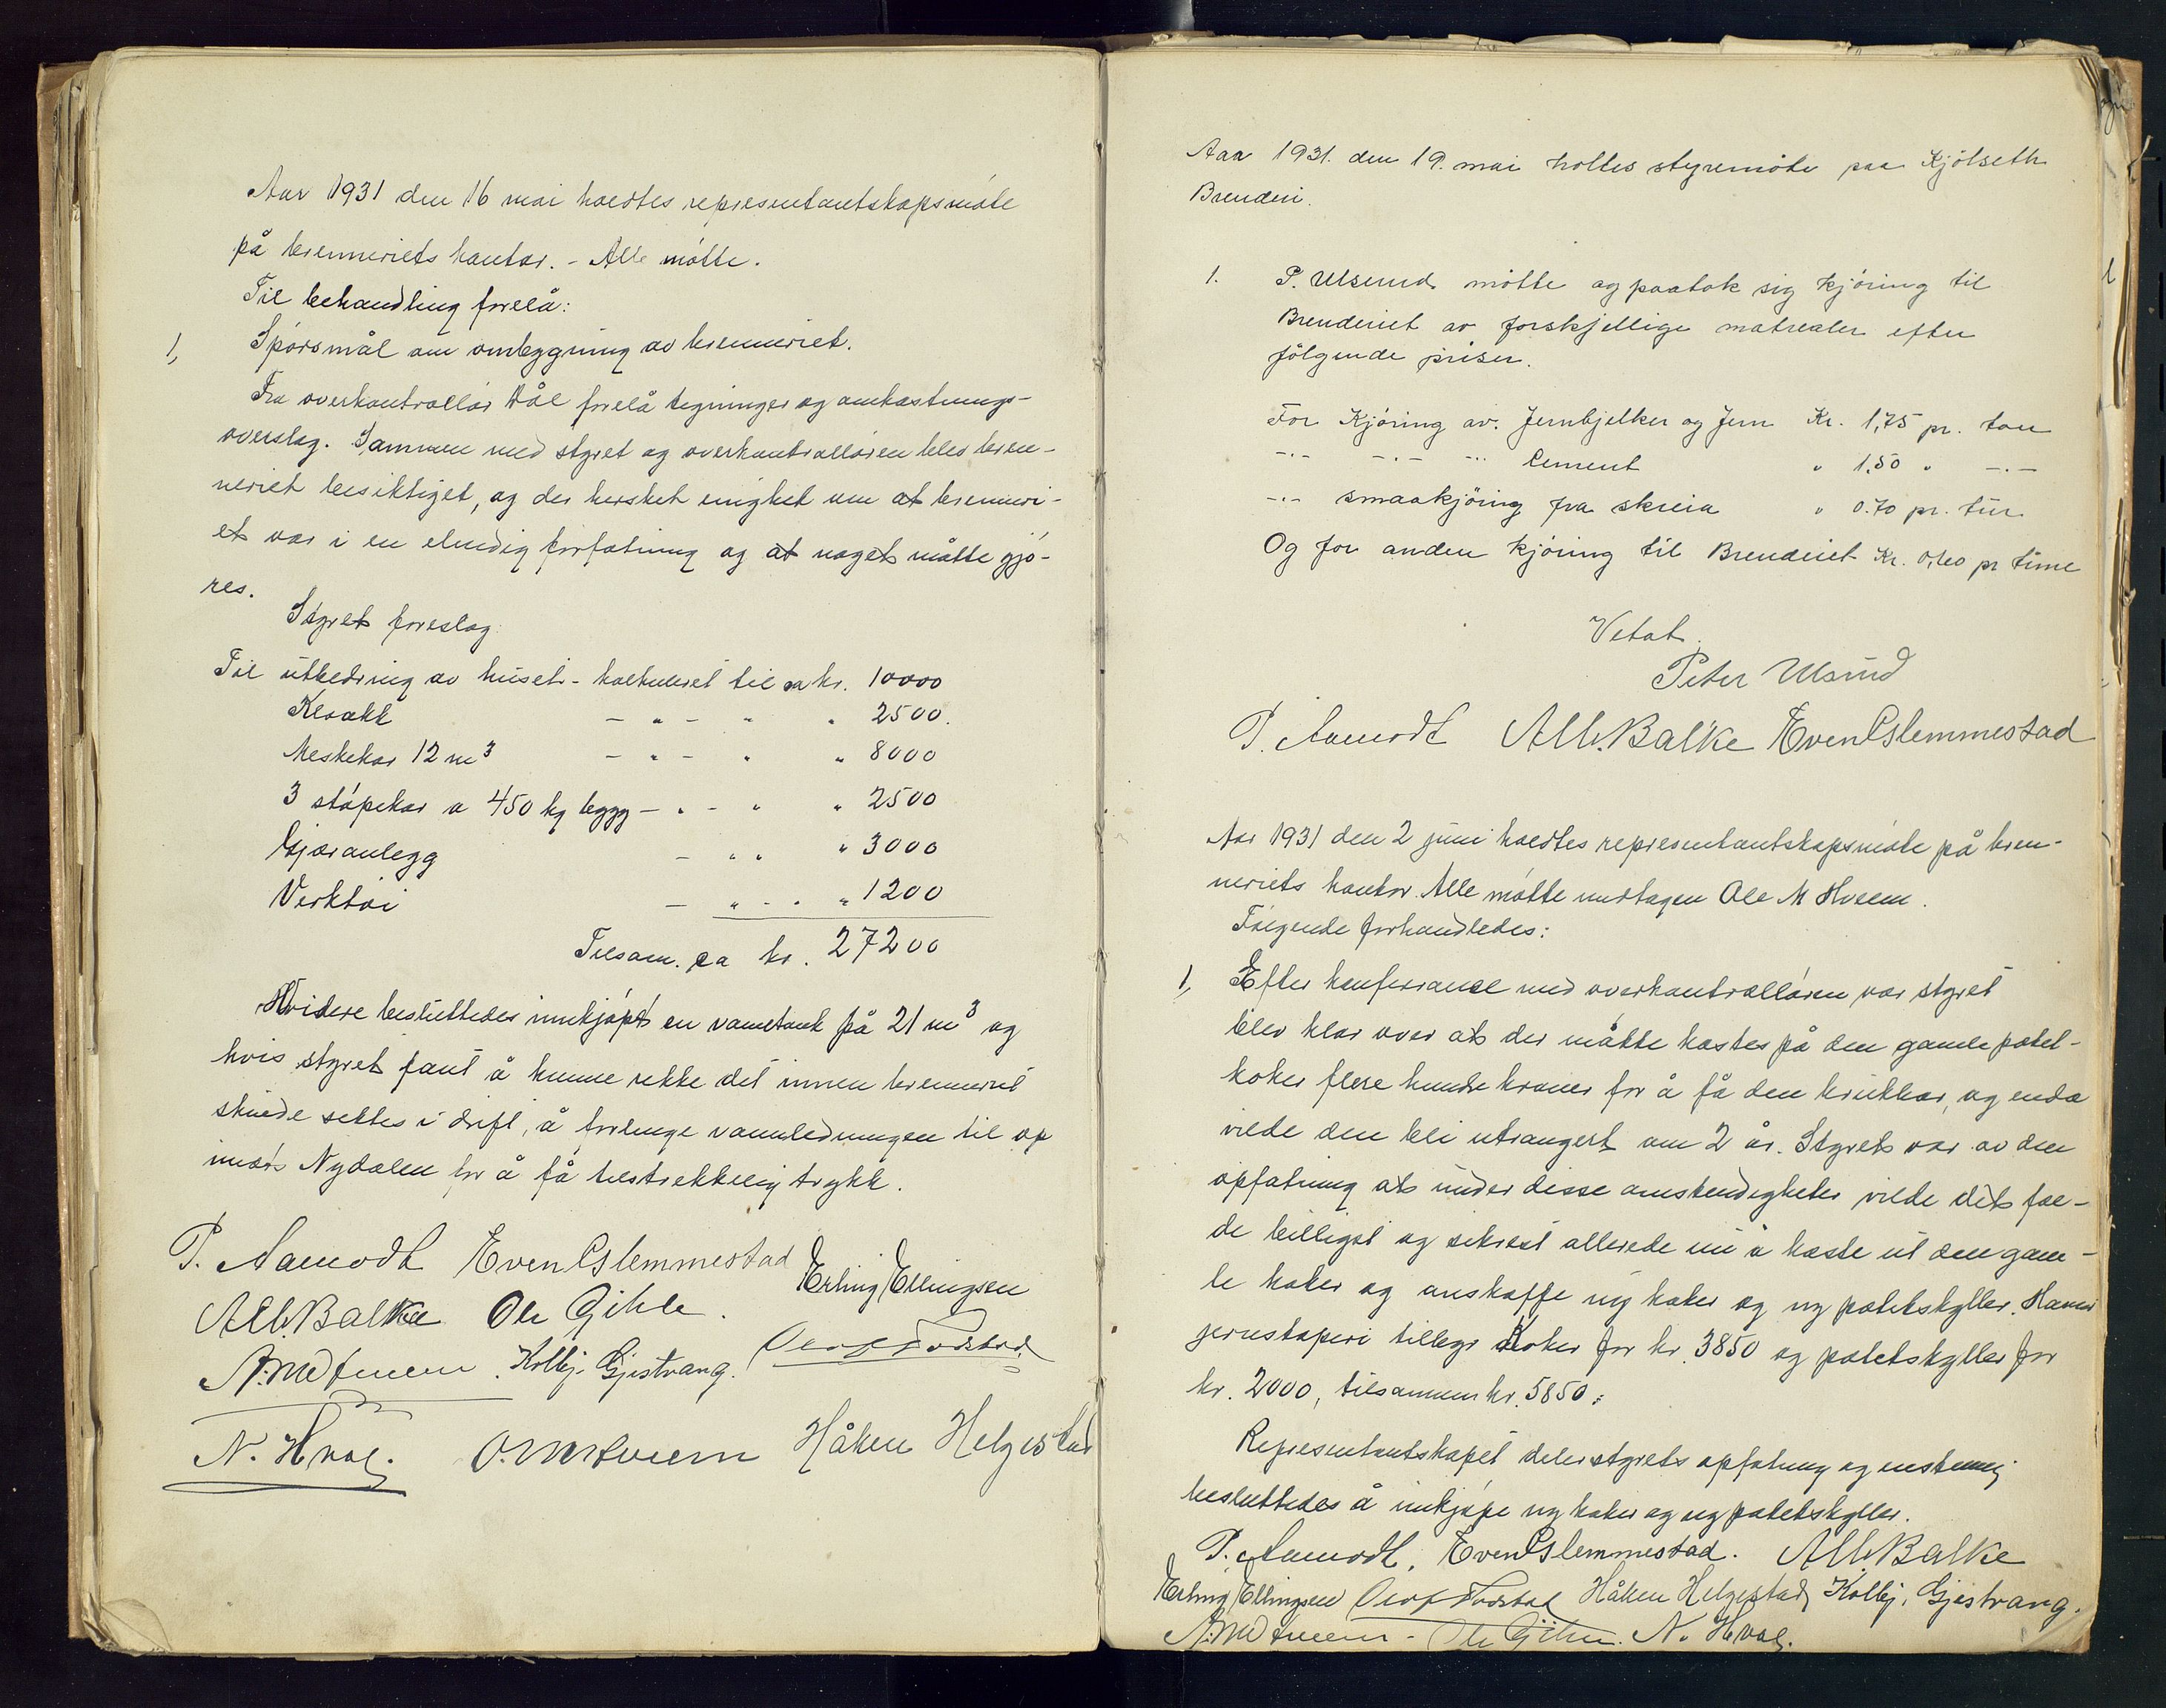 Aar 1931 den 16 mai holdtes representantskapsmøte
på brenneriets kontor. - Alle møtte.
Til behandling forelå:
1, Spørsmål om ombygging av brenneriet.
Fra overkontrollør Dål forelå tegninger og omkostnings-
overslag. Sammen med styret og overkontrolløren blev bren-
neriet besiktiget, og der hersket enighet om at brenneri-
et var i en elendig forfatning og at noget måtte gjø-
res.
Styret foreslog:
Til utbedring av huset - kalkulert til ca kr. 10000
Kloakk - " - " " 2500.
Meskekar 12 m3 - " - " " 8000
3 støpekar a 450 kg bygg - " - " " 2500
Gjæranlegg - " " " 3000
Verktøi - " - " " 1200
Tilsam. ca kr. 27200
Videre besluttedes innkjøpt en vanntank på 21 m3 og
hvis styret fant å kunne rekke det innen brenneriet
skulde settes i drift, å forlenge vannledningen til op
imot Nydalen for å få tilstrekkelig trykk.
P. Aamodt Even Eslemmestad Erling Ellingsen
Alb. Balke Ole Gihle.
A. M. Hveem. Kolbj. Gjestvang. Olaf Fodstad
N. Hval. O. M. Hveem Håken Helgestad
Aar 1931. den 19. mai holtes styremöte paa Kjölseth
Brenderi.
1. P. Ulsund mötte og paatok sig kjöring til
Brenderiet av forskjellige matrealer efter
fölgende priser.
For Kjöring av. Jernbjelker og Jern Kr. 1,75 pr. ton
-"- -"- -"- Cement " 1,50 " -"-
-"- smaakjöring fra skreia " 0.70 pr. tur.
Og for anden kjöring til Brenderiet Kr. 0,60 pr time
Vetat.
Peter Ulsund
P. Aamodt Alb. Balke Even Eslemmestad
Aar 1931 den 2 juni holdtes representantskapsmøte på bren-
neriets kontor. Alle møtte undtagen Ole M Hveem.
Følgende forhandledes:
1, Efter konferranse med overkontrolløren var styret
blev klar over at der måtte kostes på den gamle potet-
koker flere hundre kroner for å få den brukbar, og enda
vilde den bli utrangert om 2 år. Styret var av den
opfatning at under disse omstendigheter vilde det fal-
de billigst og sikrest allerede nu å kaste ut den gam-
le koker og anskaffe ny koker og ny potetskyller. Hamar
jernstøperi tillegr koker for kr. 3850 og potetskyller for
kr. 2000, tilsammen kr. 5850,
Representantskapet deler styrets opfatning og enstemmig
besluttedes å innkjøpe ny koker og ny potetskyller.
P. Aamodt. Even Eslemmestad. Alb. Balke
Erling Ellingsen Olaf Fodstad Håken Helgestad Kolbj. Gjestvang.
A. M. Hveem - Ole Gihle. N. Hval.